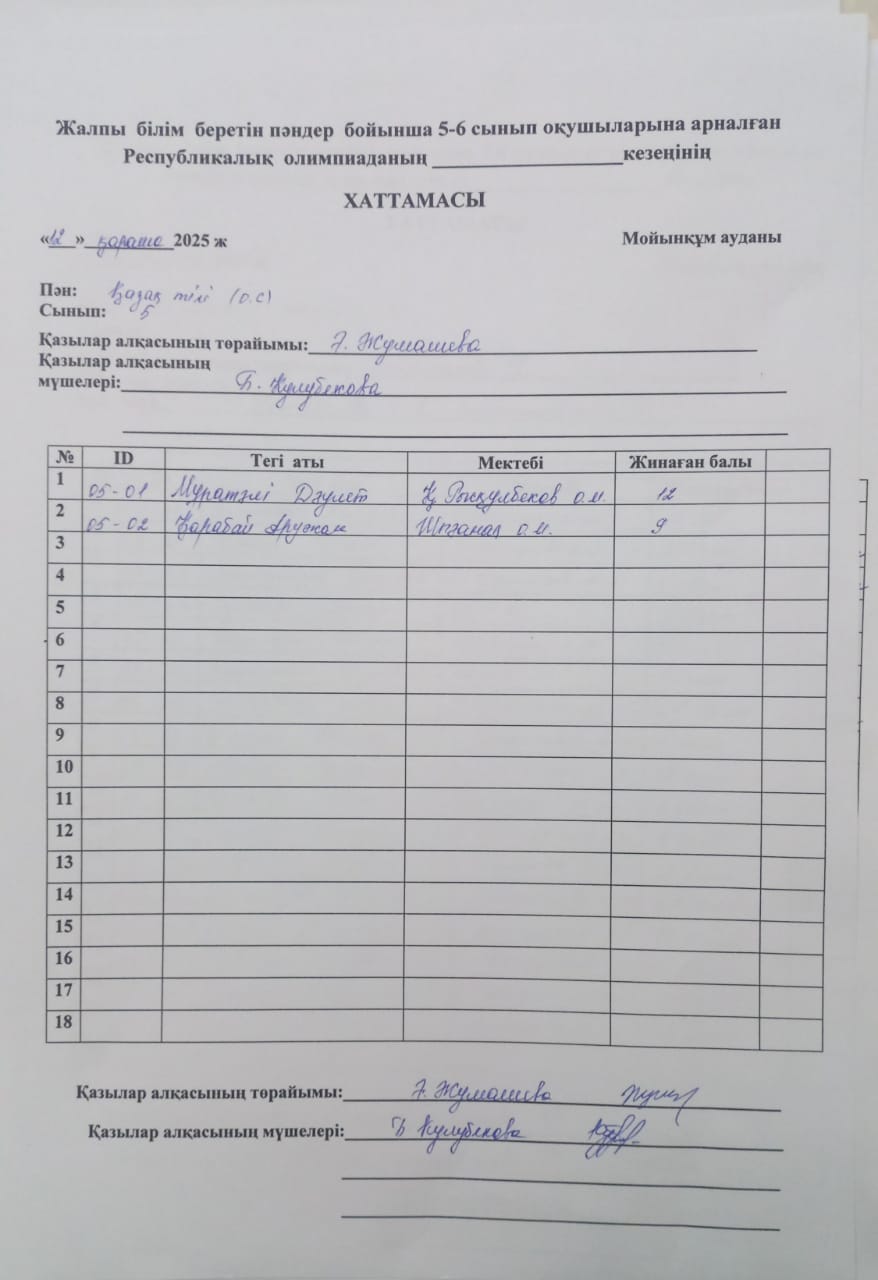 Жалпы білім беретін пәндер бойынша 5-6 сынып оқушыларына арналған
Республикалық олимпиаданың ____________________ кезеңінің
ХАТТАМАСЫ
«12» қараша 2025 ж Мойынқұм ауданы
Пән: Қазақ тілі (о.с)
Сынып: 5
Қазылар алқасының төрайымы: Ғ. Жумашева
Қазылар алқасының
мүшелері: Б. Кулубекова
№ ID Тегі аты Мектебі Жинаған балы
1 05-01 Муратәлі Дәулет Қ Рысқулбеков о.м. 12
2 05-02 Қарабай Аружан Шығанақ о.м. 9
3
4
5
6
7
8
9
10
11
12
13
14
15
16
17
18
Қазылар алқасының төрайымы: Ғ. Жумашева
Қазылар алқасының мүшелері: Б Кулубекова